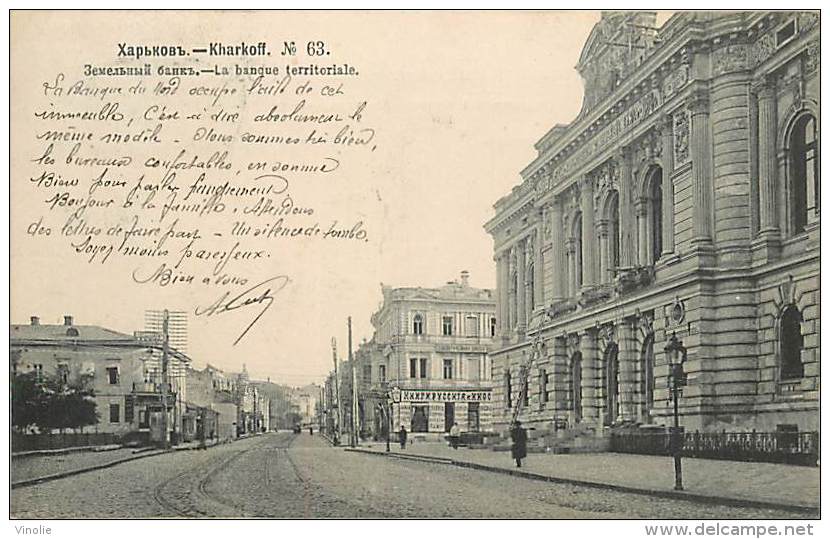 Харьковъ.—Kharkoff. № 63.
Земельный банкъ.—La banque territoriale.
La Banque du Nord occupe l'aile de cet
immeuble, C'est à dire absolument le
même modèle - Nous sommes très bien,
les bureaux confortables, en somme
Bien pour parler
Bonjour à la famille. Attendons
des lettres de faire part - Un silence de tombe.
Soyez moins paresseux.
Bien à vous
КНИГИ РУССКІЯ и ИНОС
Vinolie
www.delcampe.net